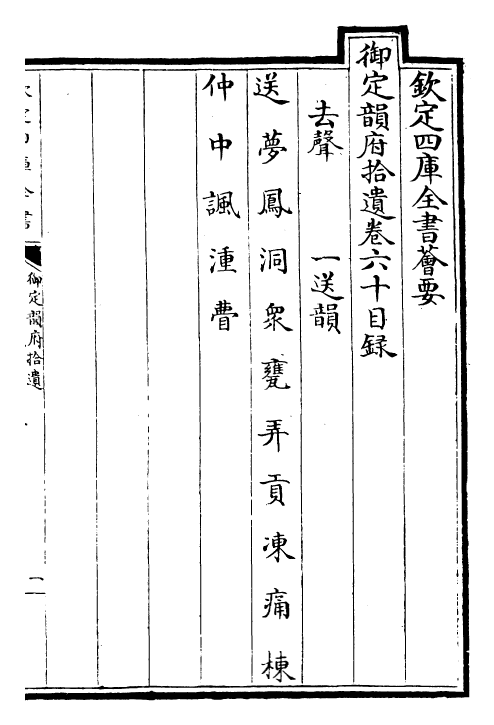 欽定四庫全書薈要
御定韻府拾遺卷六十目錄
去聲　一送韻
送夢鳳洞衆甕弄貢凍痛棟
仲中諷湩瞢
御定韻府拾遺
一